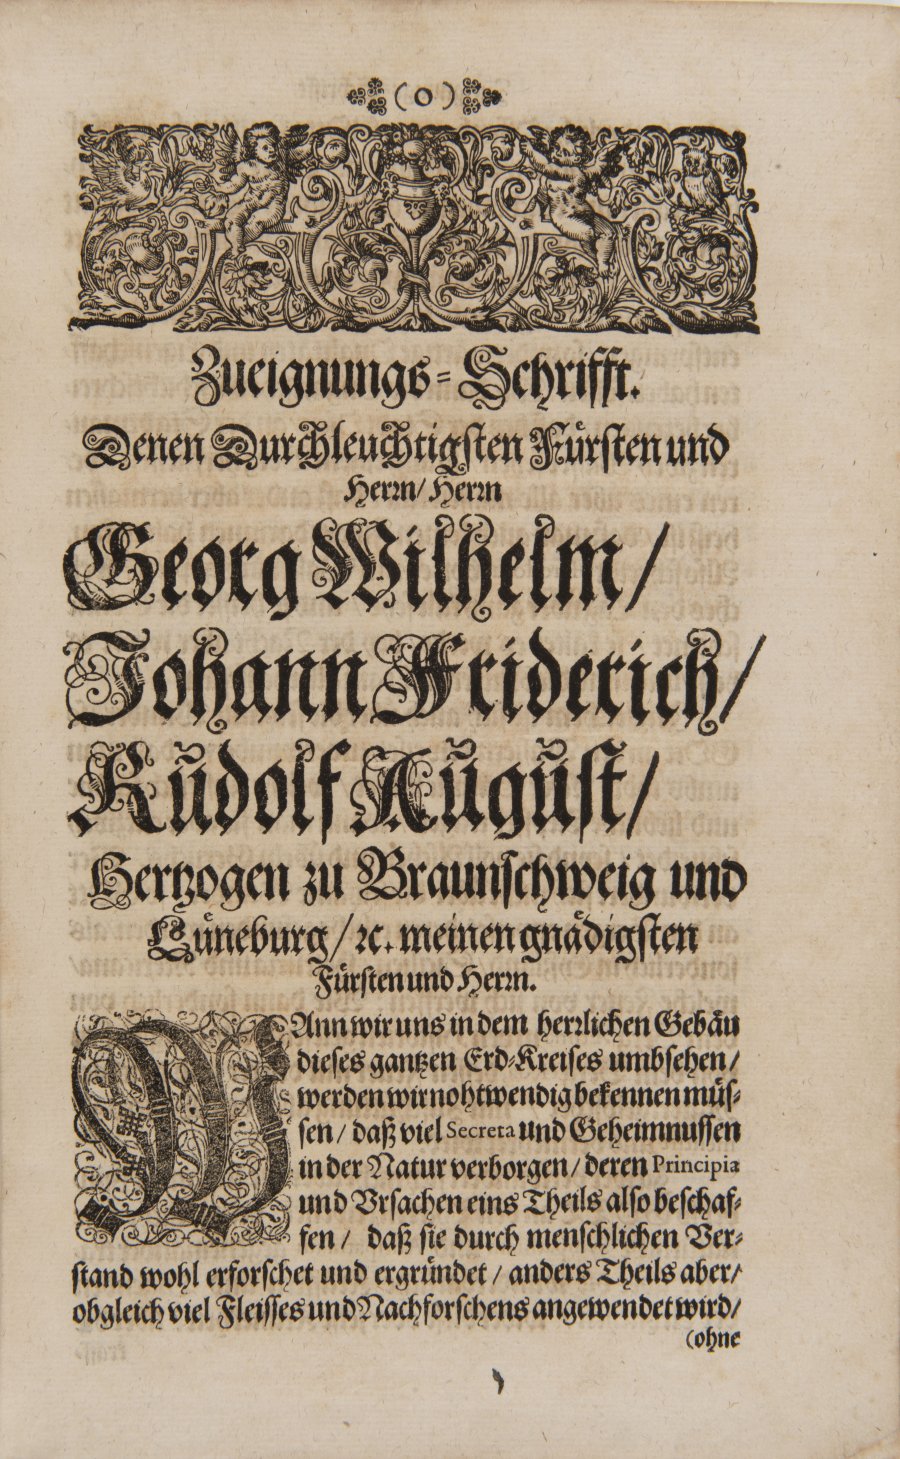 (O)
Zueignungs-Schrifft.
Denen Durchleuchtigsten Fürsten und
Herrn/ Herrn
Georg Wilhelm/
Johann Friderich/
Rudolf August/
Hertzogen zu Braunschweig und
Lüneburg/ ꝛc. meinen gnädigsten
Fürsten und Herrn.
WAnn wir uns in dem herrlichen Gebäu
dieses gantzen Erd-Kreises umbsehen/
werden wir nohtwendig bekennen müs-
sen/ daß viel Secreta und Geheimnussen
in der Natur verborgen/ deren Principia
und Vrsachen eins Theils also beschaf-
fen/ daß sie durch menschlichen Ver-
stand wohl erforschet und ergründet/ anders Theils aber/
obgleich viel Fleisses und Nachforschens angewendet wird/
(ohne